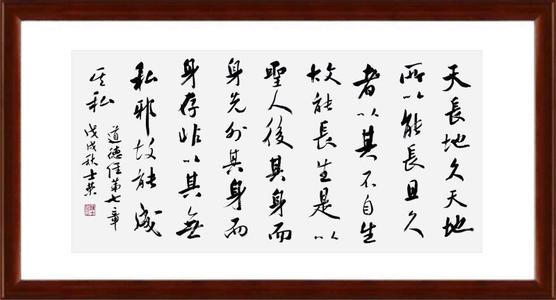 天長地久天地
所以能長且久
者以其不自生
故能長生是以
聖人後其身而
身先外其身而
身存非以其無
私邪故能成
其私
道德经第七章
戊戌秋士荣